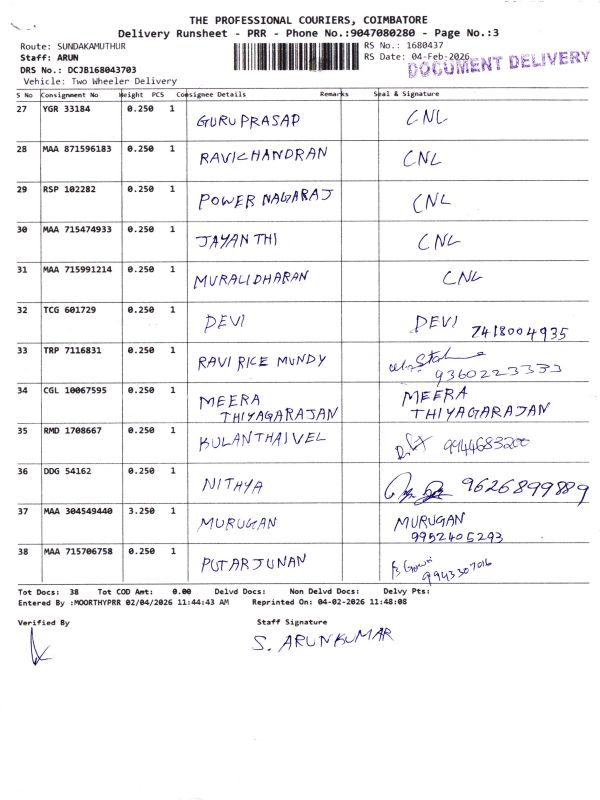 THE PROFESSIONAL COURIERS, COIMBATORE
Delivery Runsheet - PRR - Phone No.:9047080280 - Page No.:3
Route: SUNDAKAMUTHUR RS No.: 1680437
Staff: ARUN RS Date: 04-Feb-2026
DOCUMENT DELIVERY
DRS No.: DCJB168043703
Vehicle: Two Wheeler Delivery
S No Consignment No Weight PCS Consignee Details Remarks Seal & Signature
27 YGR 33184 0.250 1 GURUPRASAD CNL
28 MAA 871596183 0.250 1 RAVICHANDRAN CNL
29 RSP 102282 0.250 1 POWER NAGARAJ CNL
30 MAA 715474933 0.250 1 JAYANTHI CNL
31 MAA 715991214 0.250 1 MURALIDHARAN CNL
32 TCG 601729 0.250 1 DEVI DEVI 7418004935
33 TRP 7116831 0.250 1 RAVI RICE MUNDY
9360223333
34 CGL 10067595 0.250 1 MEERA MEERA
THIYAGARAJAN THIYAGARAJAN
35 RMD 1708667 0.250 1 KULANTHAIVEL 9944683200
36 DDG 54162 0.250 1 NITHYA 9626899889
37 MAA 304549440 3.250 1 MURUGAN MURUGAN
9952405293
38 MAA 715706758 0.250 1 PUTARJUNAN
9943307016
Tot Docs: 38 Tot COD Amt: 0.00 Delvd Docs: Non Delvd Docs: Delvy Pts:
Entered By :MOORTHYPRR 02/04/2026 11:44:43 AM Reprinted On: 04-02-2026 11:48:08
Verified By Staff Signature
S. ARUNKUMAR